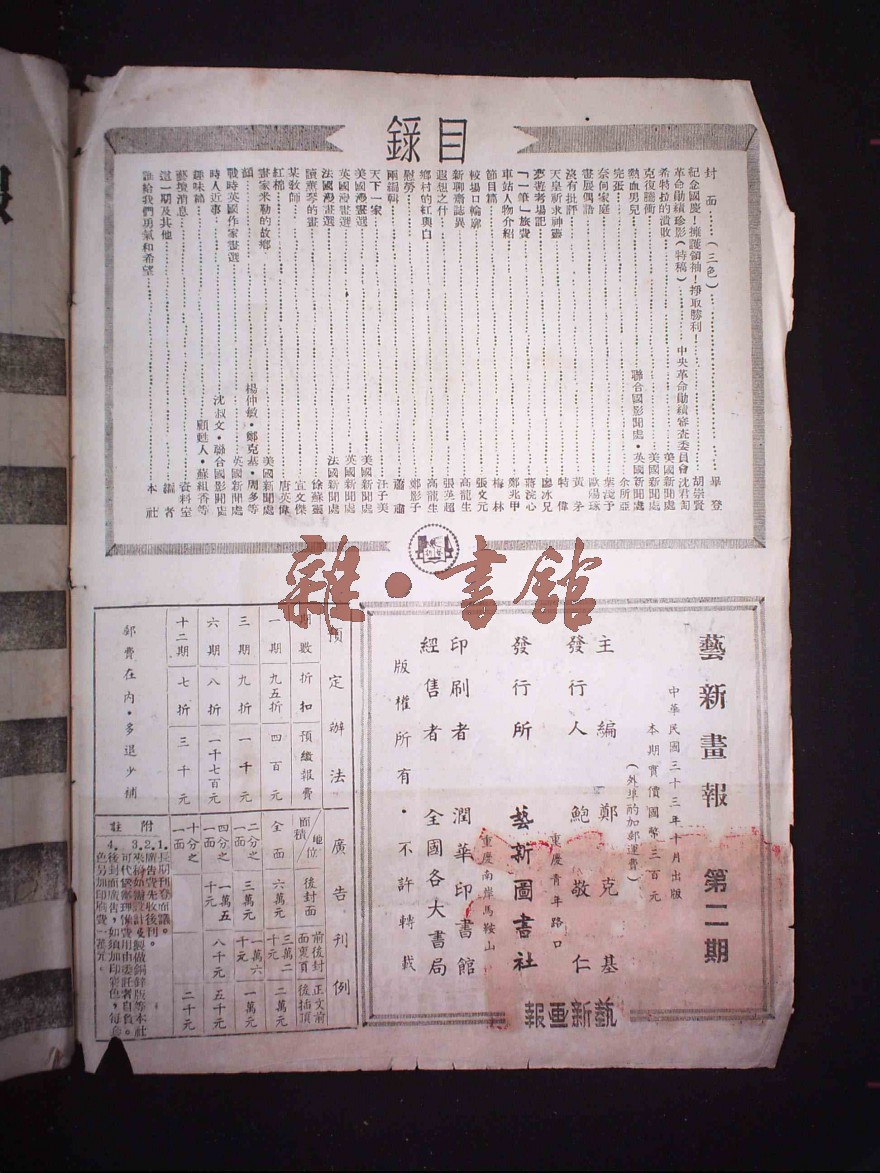 目錄
封面……(三色)……畢登
紀念國慶！擁護領袖！爭取勝利！……胡崇賢
革命勛績珍影(特稿)……中央革命勛績審查委員會沈君萄
希特拉的潰敗……美國新聞處
克復騰衝……美國新聞處
熱血男兒……聯合國影聞處・英國新聞處
完蛋……余所亞
奈何家庭……葉淺予
畫展偶語……歐陽琢
沒有批評……黃茅
天皇祈求神靈……特偉
夢遊考場記……廖冰兄
「一筆」旅費……蔣浣心
車站人物介紹……鄭兆甲
節目篇……梅林
較場口輪廓……張文元
新聊齋誌異……高龍生
遐想之什……張英超
鄉村的紅與白……高龍生
慰勞……鄭影子
兩編輯……蕭肅
天下一家……汪子美
美國漫畫選……美國新聞處
英國漫畫選……英國新聞處
法國漫畫選……法國新聞處
讀薰琴的畫……徐蘇靈
某教師……宜文傑
紅棉……唐英偉
畫家米勒的故鄉……美國新聞處
頷……楊仲敏・鄭克基・周多等
戰時英國作家畫選……英國新聞處
時人近事……沈叔文・聯合國影聞處
趣味篇……顧甦人・蘇組香等
藝壇消息……資料室
這一期及其他……編者
誰給我們勇氣和希望……本社
雜・書館
藝新畫報 第二期
中華民國三十三年十月出版
本期實價國幣三百元
(外埠酌加郵運費)
主編 鄭克基
發行人 鮑敬仁
重慶青年路口
發行所 藝新圖書社
重慶南岸馬鞍山
印刷者 潤華印書館
經售者 全國各大書局
版權所有・不許轉載
藝新画報
預定辦法
期數 折扣 預繳報費
一期 九五折 四百元
三期 九折 一千元
六期 八折 一千七百元
十二期 七折 三千元
郵費在內・多退少補
廣告刊例
地位 面積 後封面 前後封面裏頁 正文前後插頂
全面 六萬元 三萬二千元 二萬元
二分之一面 三萬元 一萬六千元 一萬元
四分之一面 一萬五千元 八千元 五千元
十分之一面 二千元
附註
1. 長期刊登面議。
2. 廣告費先收後刊。
3. 來稿如需設計及製做銅鋅版等本社可代繁辦理惟費用由委託者自負。
4. 後封面廣告，如須加印彩色，每套色另加印堆費一萬元。